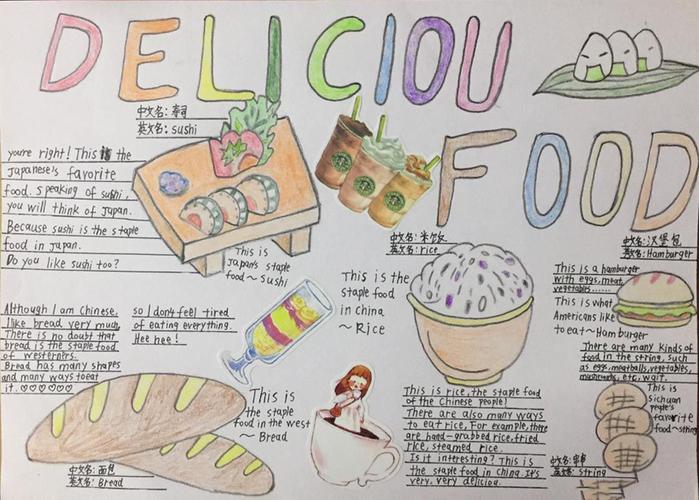 DELICIOU
FOOD
中文名：寿司
英文名：sushi
you're right! This is the
Japanese's favorite
food. Speaking of sushi,
you will think of Japan.
Because sushi is the staple
food in Japan.
Do you like sushi too?
This is
Japan's staple
food~sushi
Although I am Chinese.
I like bread very much,
There is no doubt that
bread is the staple food
of westerners.
Bread has many shapes
and many ways to eat
it. ♡♡♡♡♡♡
so I don't feel tired
of eating everything.
Hee hee!
This is
the staple
food in the west
~Bread
中文名：面包
英文名：Bread
This is the
staple food
in china
~Rice
中文名：米饭
英文名：rice
This is rice, the staple food
of the Chinese people!
There are also many ways
to eat rice, For example, there
are hand-grabbed rice, fried
rice, steamed rice.
Is it interesting? This is
the staple food in China. It's
very, very delicious.
中文名：汉堡包
英文名：Hamburger
This is a hamburger
with eggs, meat,
vegetables......
This is what
Americans like
to eat~Hamburger
There are many kinds of
food in the string, such
as eggs, meatballs, vegetables,
mushrooms, etc, wait.
This is
sichuan
people's
favorite
food~string
英文名：string